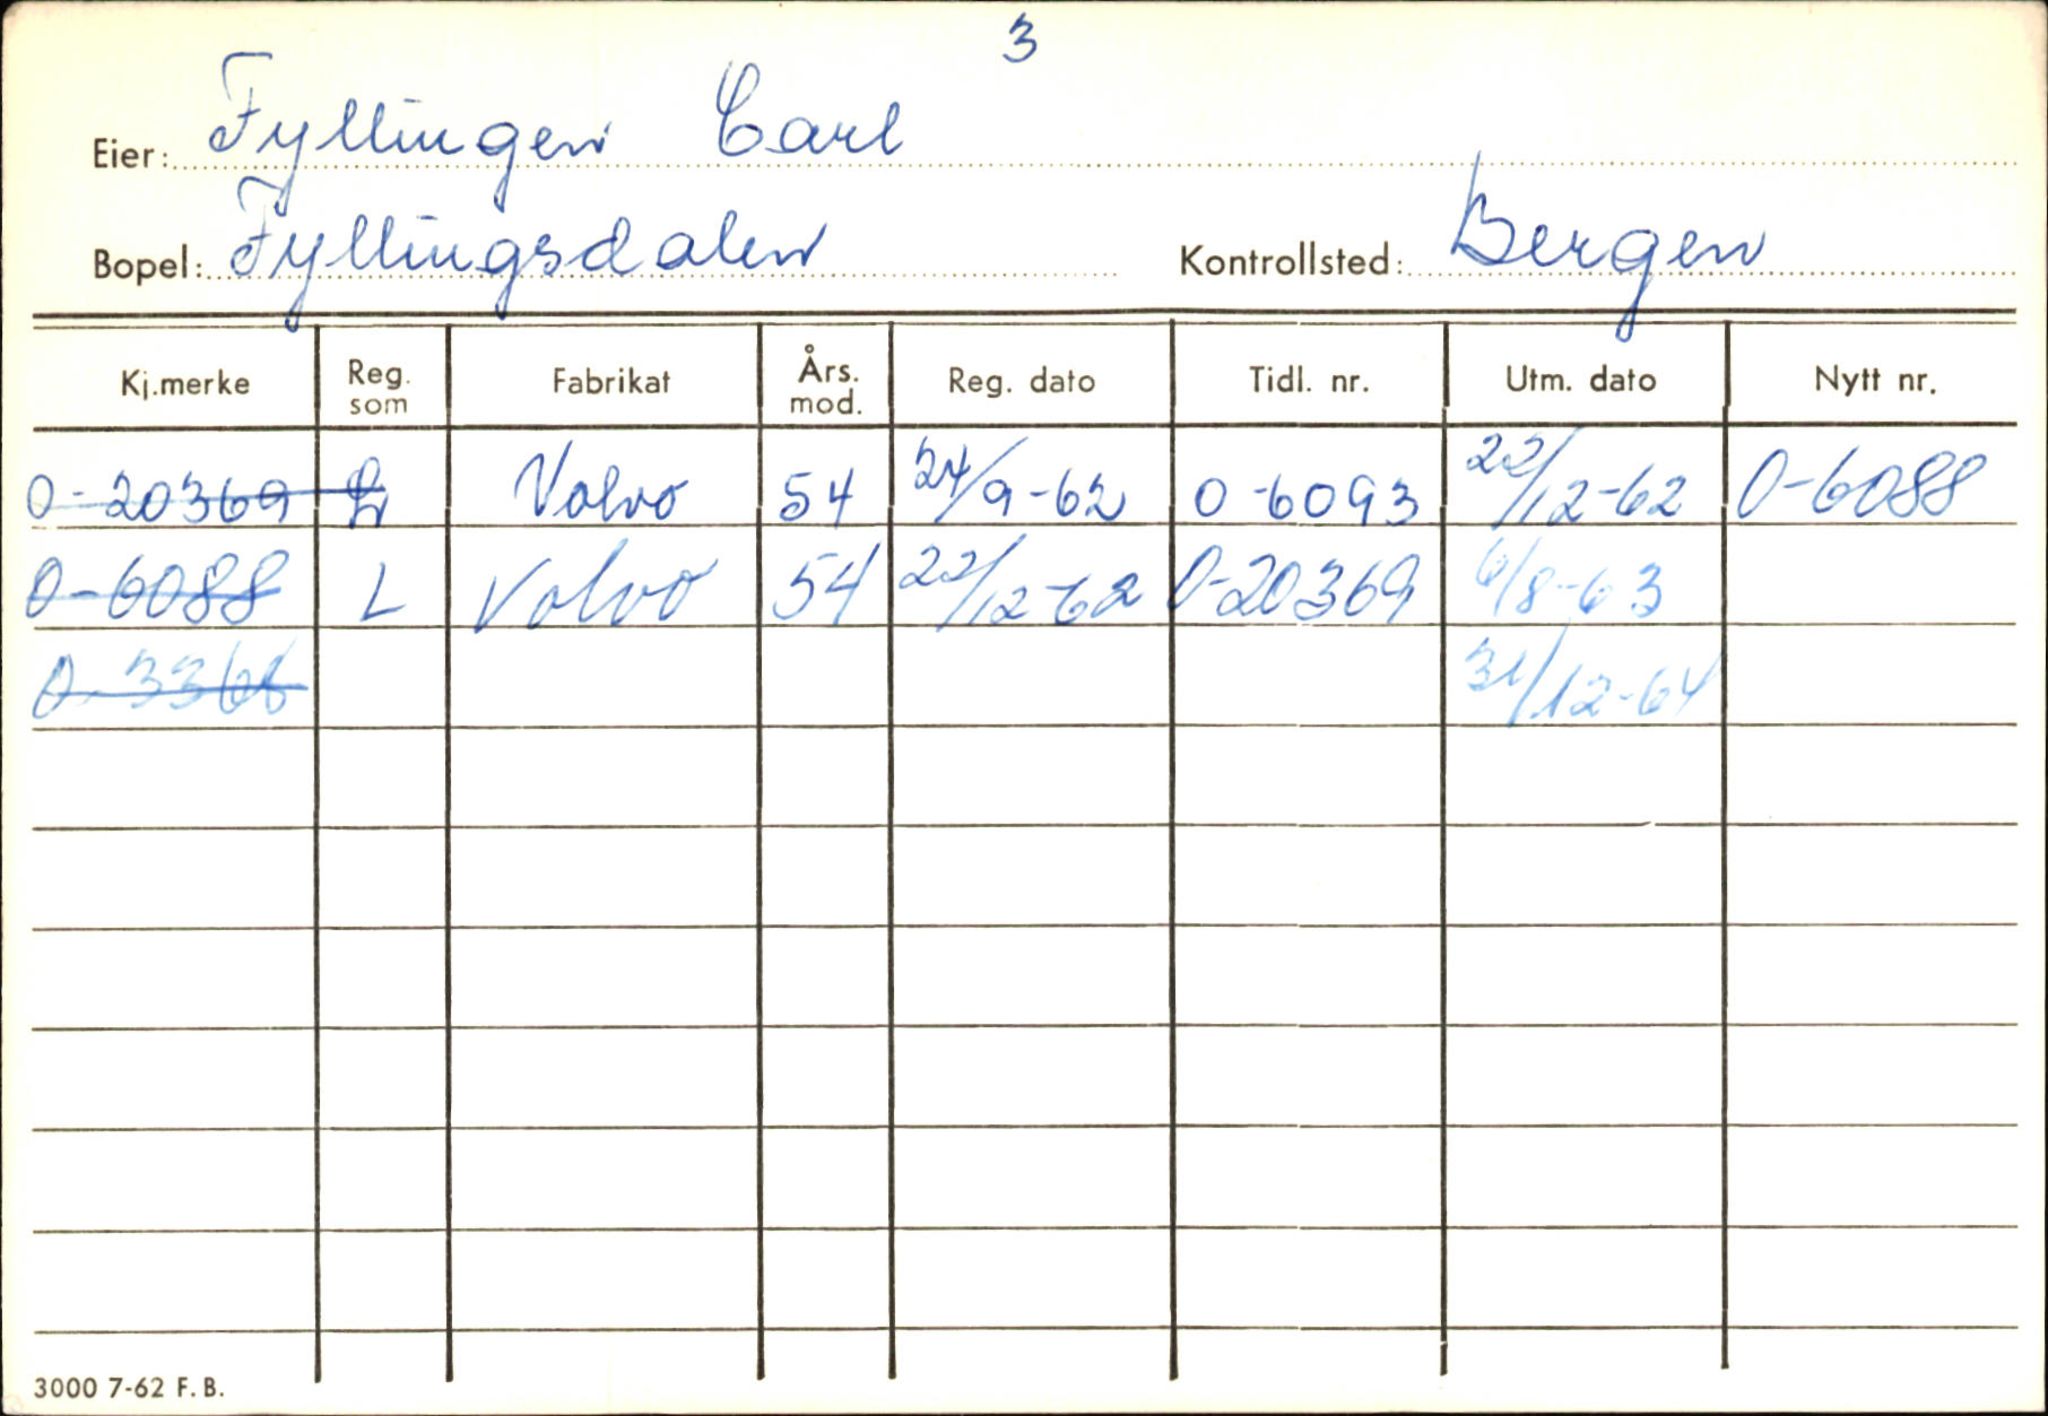 3
Eier: Fyllingen Carl
Bopel: Fyllingsdalen Kontrollsted: Bergen
Kj.merke Reg. som Fabrikat Års. mod. Reg. dato Tidl. nr. Utm. dato Nytt nr.
O-20369 L Volvo 54 24/9-62 O-6093 22/12-62 O-6088
O-6088 L Volvo 54 22/12-62 O-20369 6/8-63
31/12-64
3000 7-62 F. B.